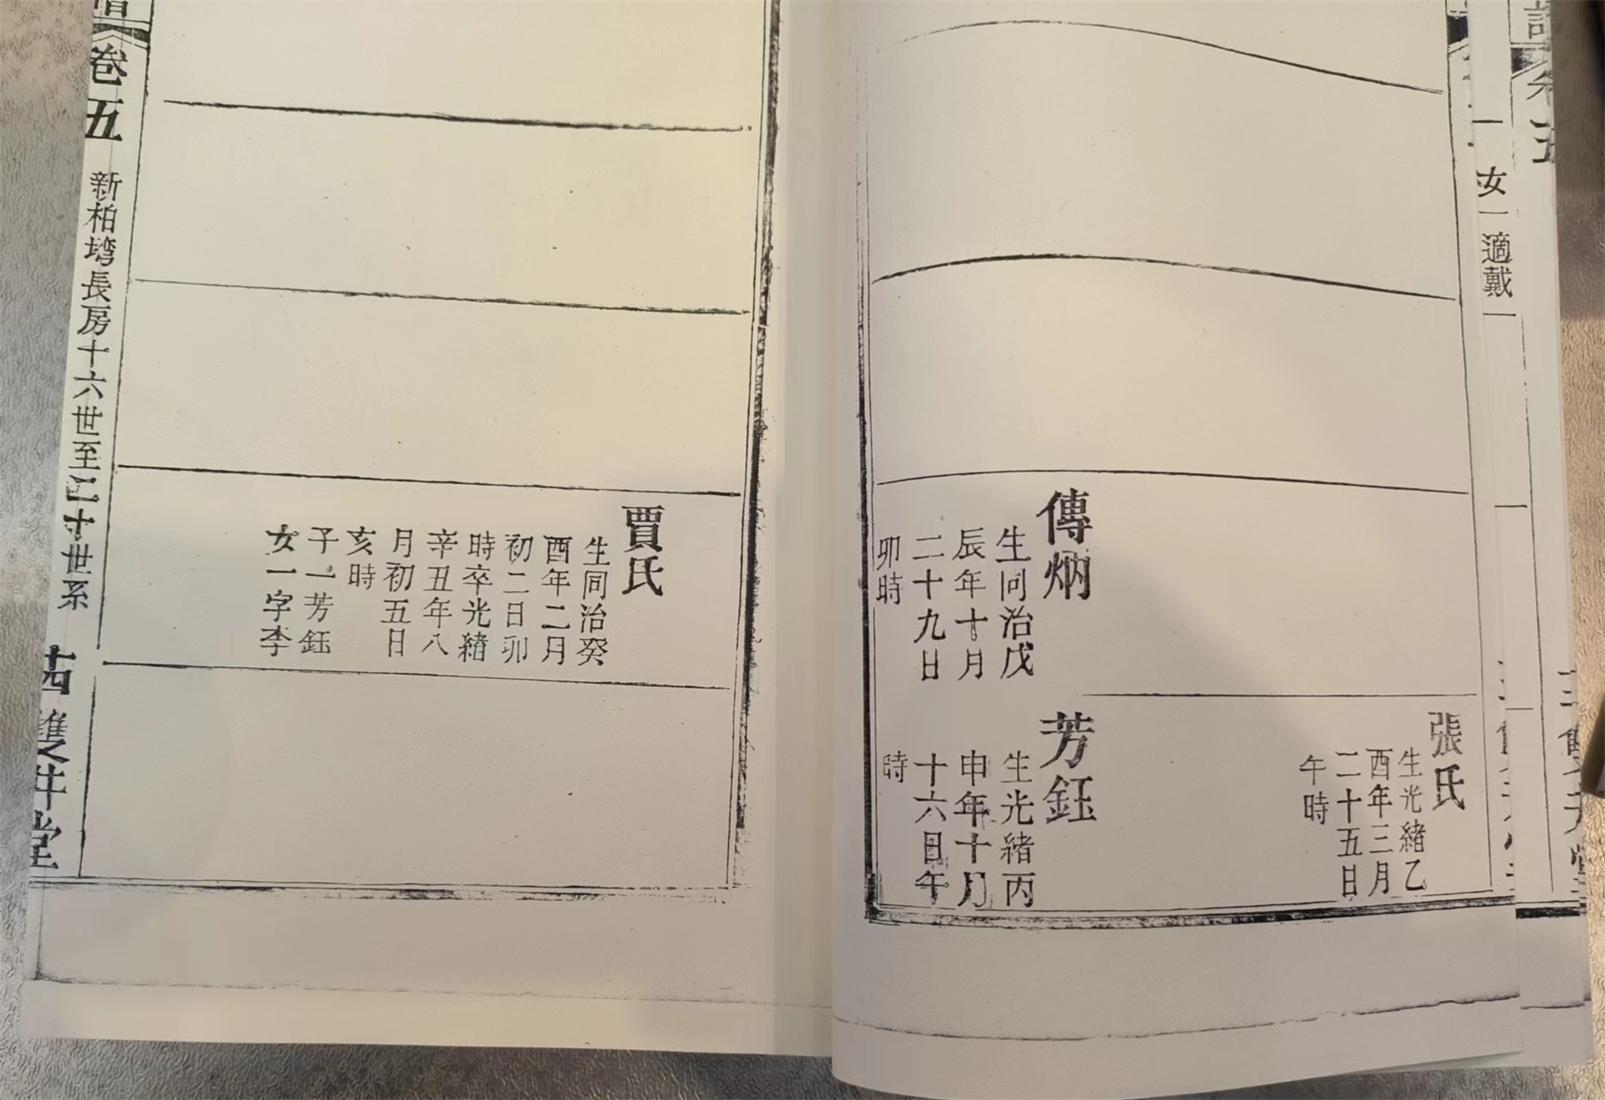 女一適戴
張氏
生光緒乙
酉年三月
二十五日
午時
傳炳
生同治戊
辰年十月
二十九日
卯時
芳鈺
生光緒丙
申年十月
十六日午
時
賈氏
生同治癸
酉年二月
初二日卯
時卒光緒
辛丑年八
月初五日
亥時
子一芳鈺
女一字李
卷五
新柏塆長房十六世至二十世系
十四
雙井堂